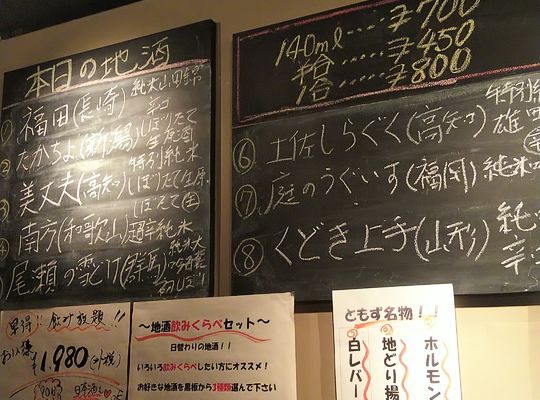 本日の地酒
① 福田(長崎) 純米山田錦
辛口
② たかちよ(新潟) しぼりたて
生原酒
③ 美丈夫(高知) 特別純米
しぼりたて生原
④ 南方(和歌山) 超辛純米
尾瀬の雪どけ(群馬) 純米大
140ml.....¥700
半合.....¥450
1合.....¥800
⑥ 土佐しらぎく(高知) 特別純
雄
⑦ 庭のうぐいす(福岡) 純米
⑧ くどき上手(山形) 純
辛
早得!! 飲み放題!!
お1人様
¥1,980(税)
90分
〜地酒飲みくらべセット〜
日替わりの地酒!!
いろいろ飲みくらべしたい方にオススメ!
お好きな地酒を黒板から3種類選んで下さい
ともず名物!!
ホルモン
地どり揚
白レバー